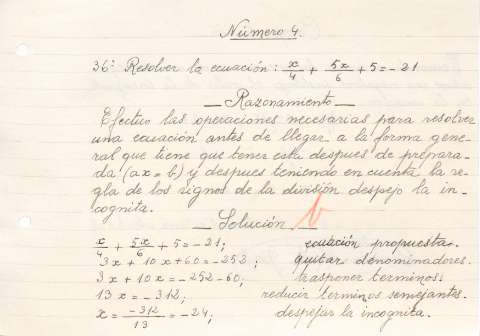 Número 4.
36º Resolver la ecuación: x/4 + 5x/6 + 5 = -21
Razonamiento
Efectuo las operaciones necesarias para resolver
una ecuación antes de llegar a la forma gene-
ral que tiene que tener esta despues de prepara-
da (ax = b) y despues teniendo en cuenta la re-
gla de los signos de la división despejo la in-
cognita.
Solución
x/4 + 5x/6 + 5 = -21; ecuación propuesta.
3x + 10x + 60 = -252; quitar denominadores.
3x + 10x = -252 - 60; trasponer terminos.
13x = -312; reducir terminos semejantes.
x = -312/13 = -24; despejar la incognita.